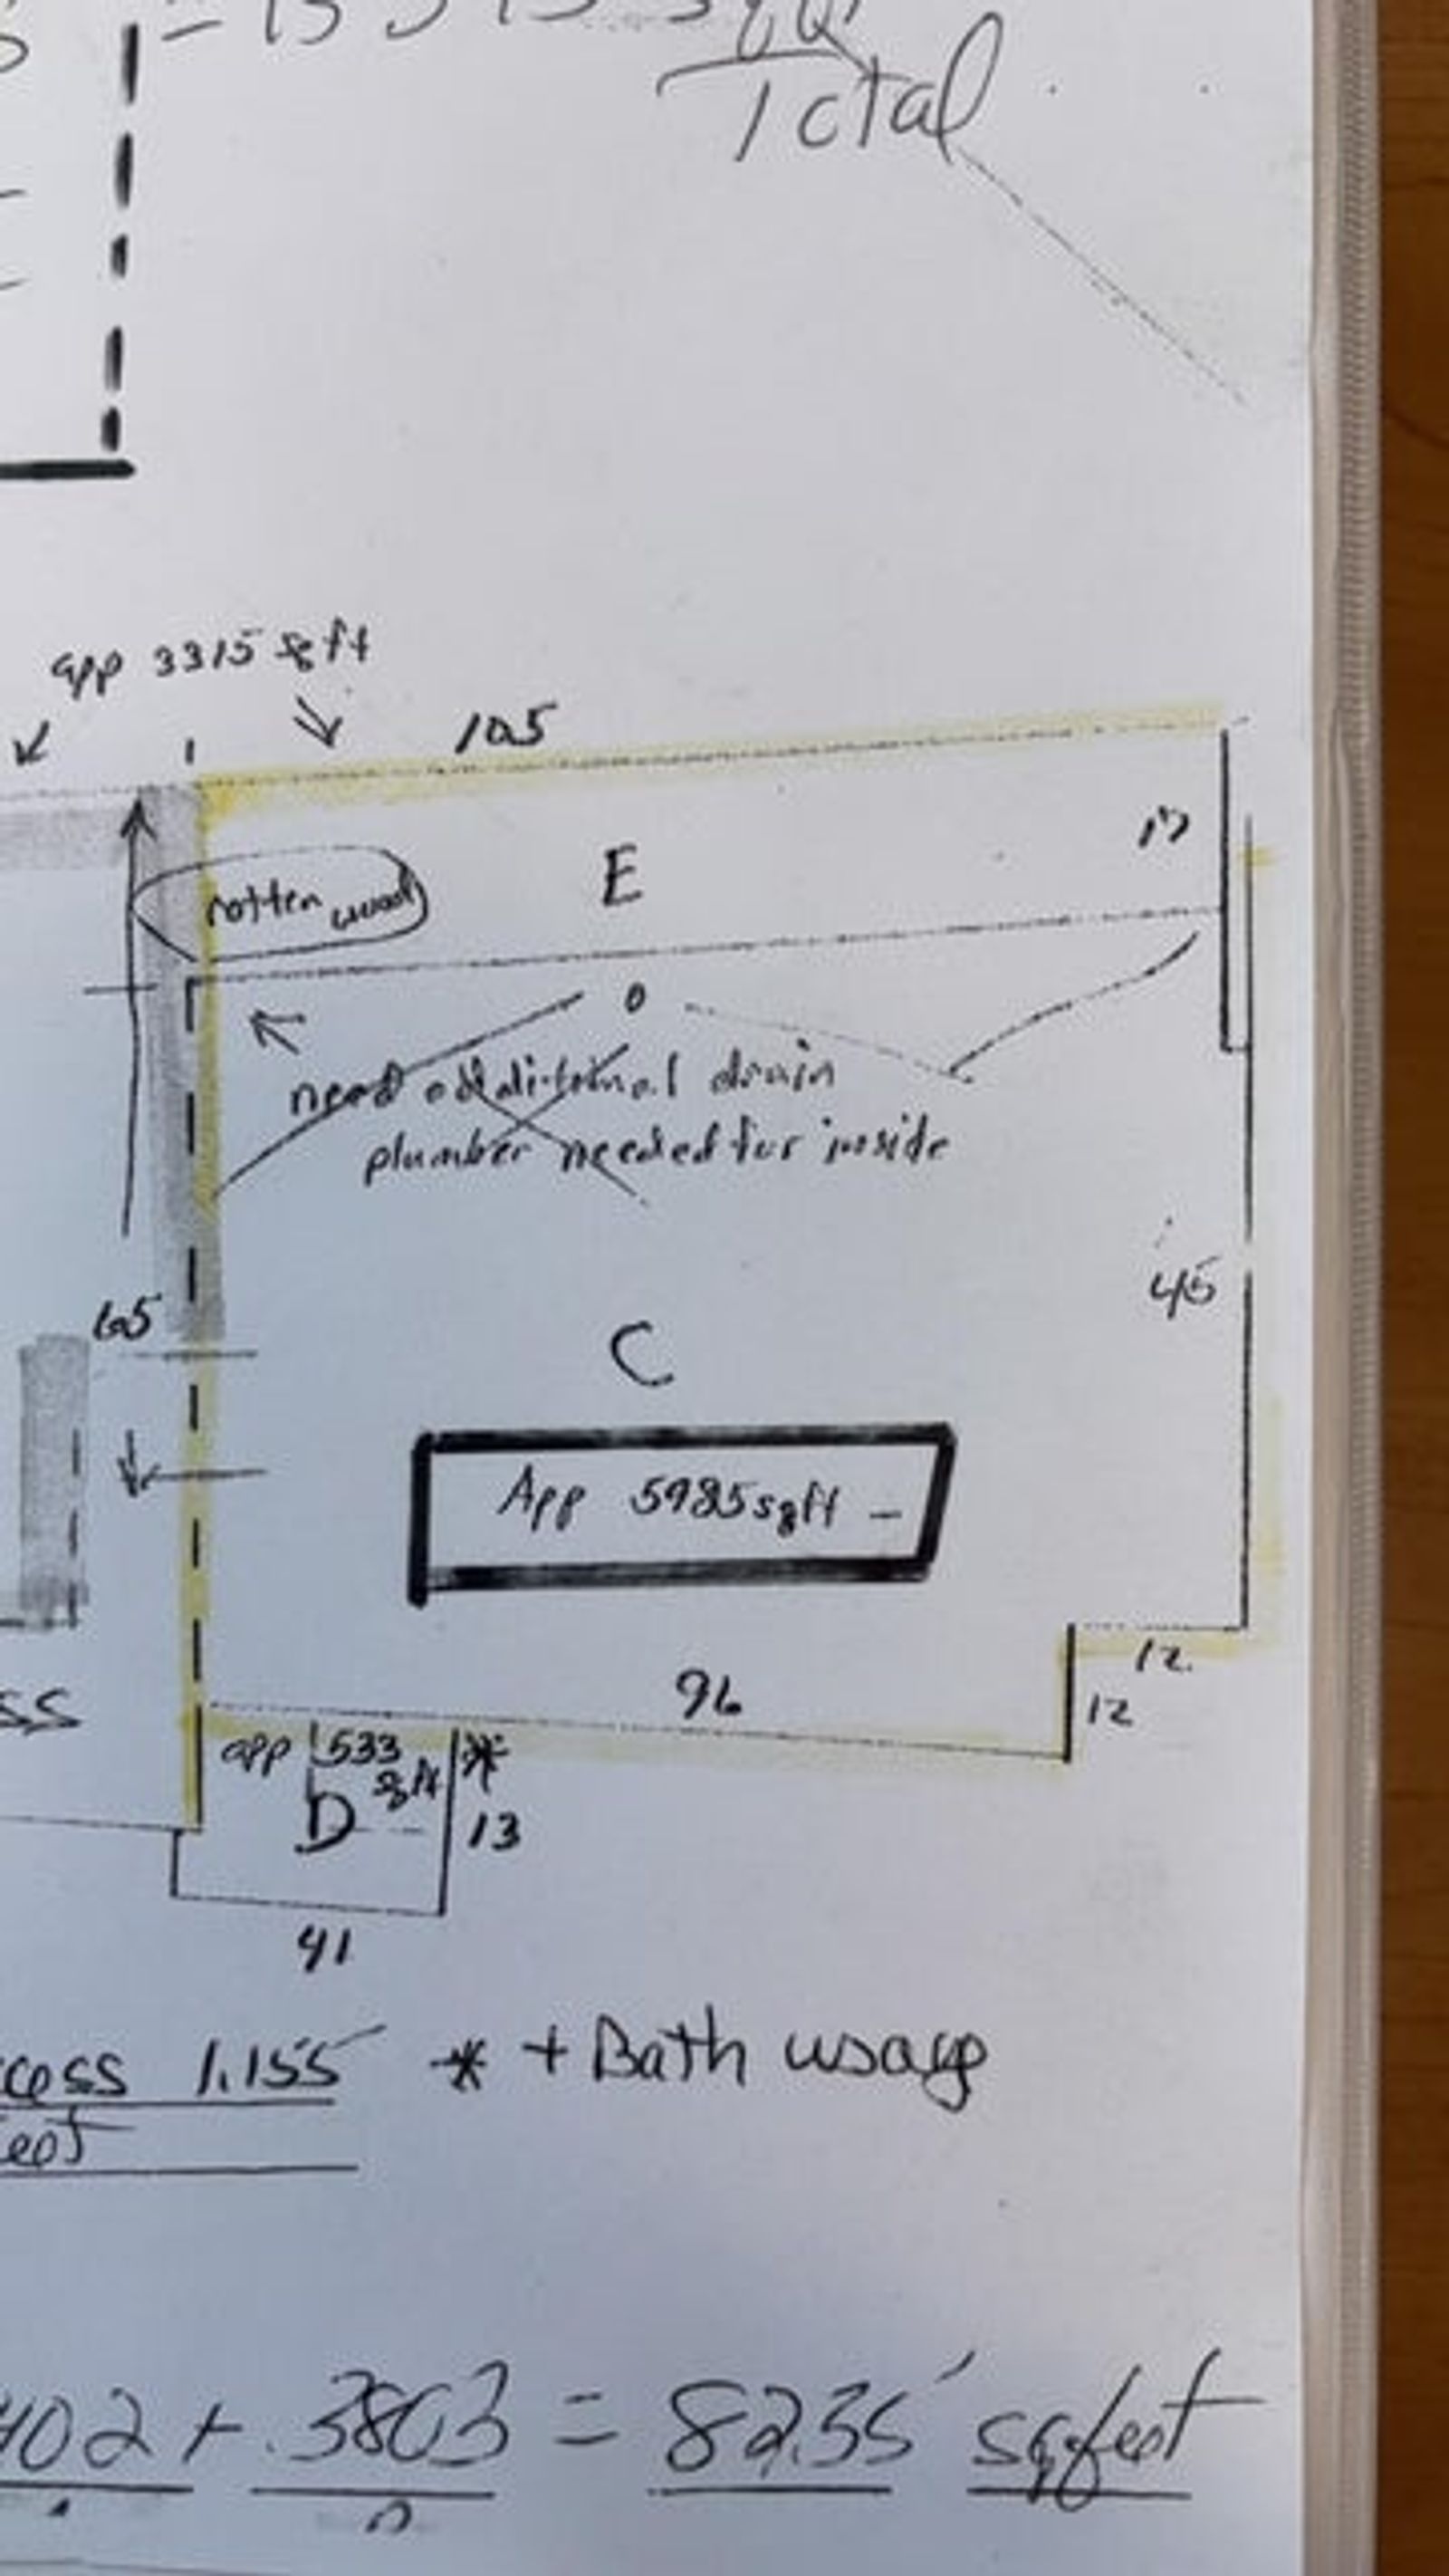 Total
app 3315 sqft
105
17
E
rotten wood
need additional drain
plumber needed for inside
45
65
C
App 5985 sqft –
12
96
12
app 533
sqft
*
D
13
41
1.155 * + Bath usage
+ 3803 = 8235 sqfeet